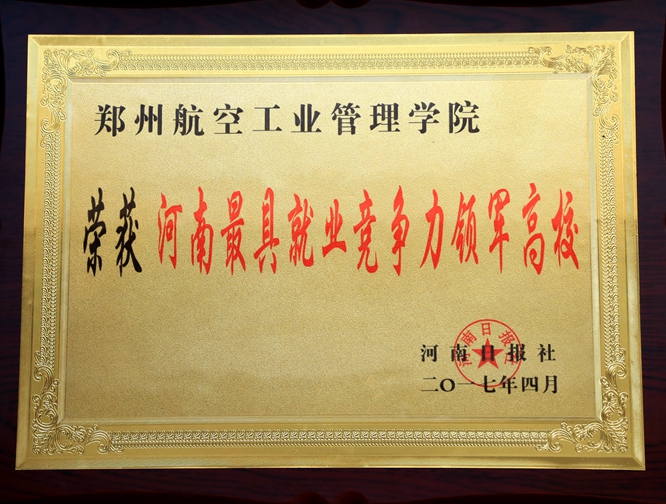 郑州航空工业管理学院
荣获 河南最具就业竞争力领军高校
河南日报社
河南日报社
二〇一七年四月